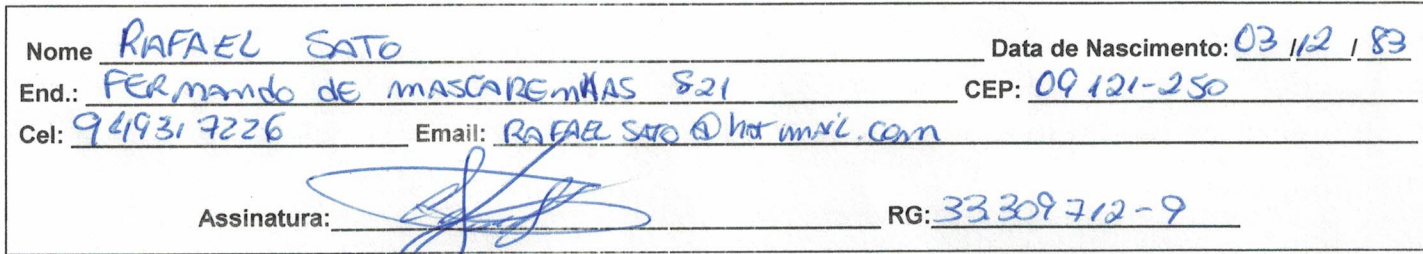 Nome RAFAEL SATO Data de Nascimento: 03/12/83
End.: FERNANDO DE MASCARENHAS 821 CEP: 09121-250
Cel: 949317226 Email: RAFAELSATO@hotmail.com
Assinatura: RG: 33.309712-9